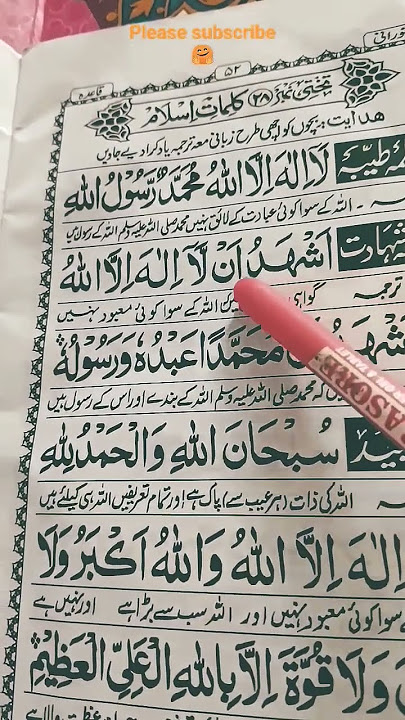 Please subscribe
🤗
قاعدہ ۵۲ نورانی
تختی نمبر (۲۸) کلمات اسلام
ھدایت: بچوں کو اچھی طرح زبانی معہ ترجمہ یاد کرا دیے جاویں
طیّبہ لَا اِلٰهَ اِلَّا اللهُ مُحَمَّدٌ رَّسُوْلُ اللهِ
اللہ کے سوا کوئی عبادت کے لائق نہیں محمد صلی اللہ علیہ وسلم اللہ کے رسول ہیں
شہادت اَشْهَدُ اَنْ لَّآ اِلٰهَ اِلَّا اللهُ
ترجمہ گواہی اللہ کے سوا کوئی معبود نہیں
مُحَمَّدًا عَبْدُهٗ وَرَسُوْلُهٗ
کہ محمد صلی اللہ علیہ وسلم اللہ کے بندے اور اس کے رسول ہیں
سُبْحَانَ اللهِ وَالْحَمْدُ لِلّٰهِ
اللہ کی ذات (ہر عیب سے) پاک ہے اور تمام تعریفیں اللہ ہی کیلئے ہیں
اِلٰهَ اِلَّا اللهُ وَاللهُ اَكْبَرُ وَلَا
سوا کوئی معبود نہیں اور اللہ سب سے بڑا ہے اور نہیں ہے
وَلَا قُوَّةَ اِلَّا بِاللهِ الْعَلِيِّ الْعَظِيْمِ